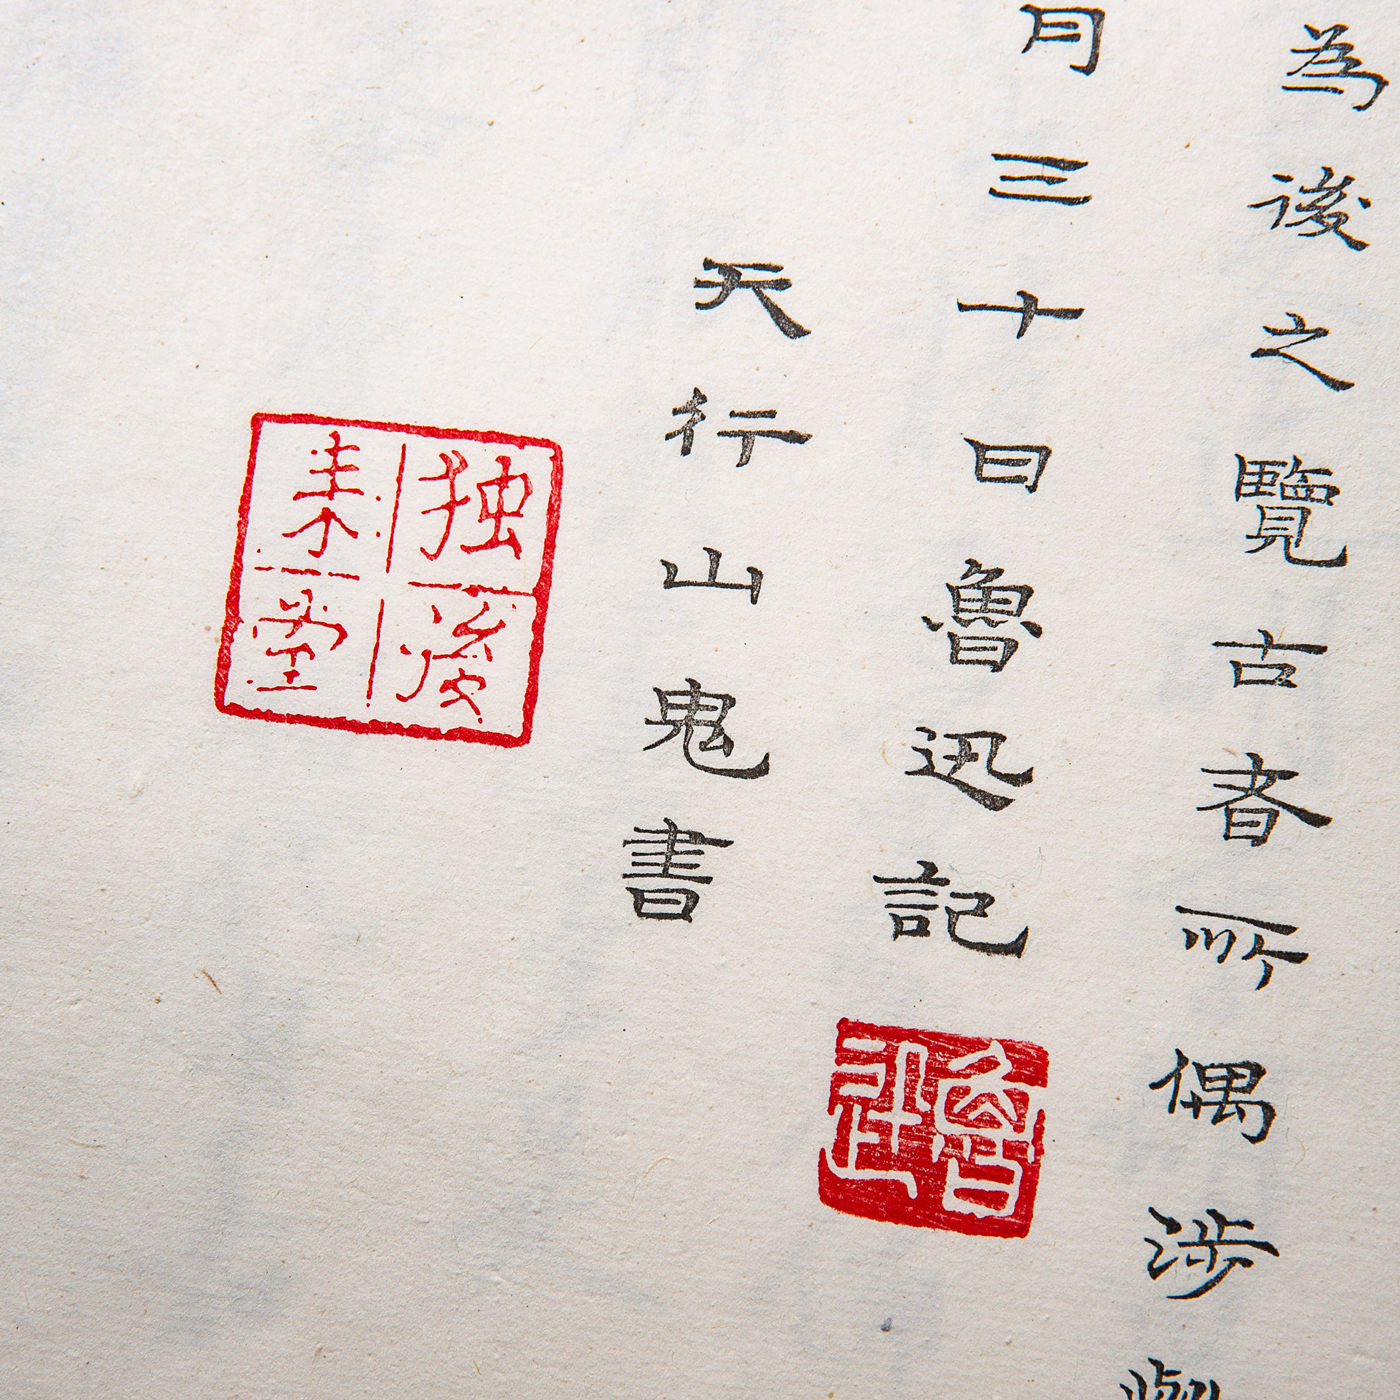 為後之覽古者所偶涉歟
月三十日魯迅記
魯迅
天行山鬼書
独後来堂